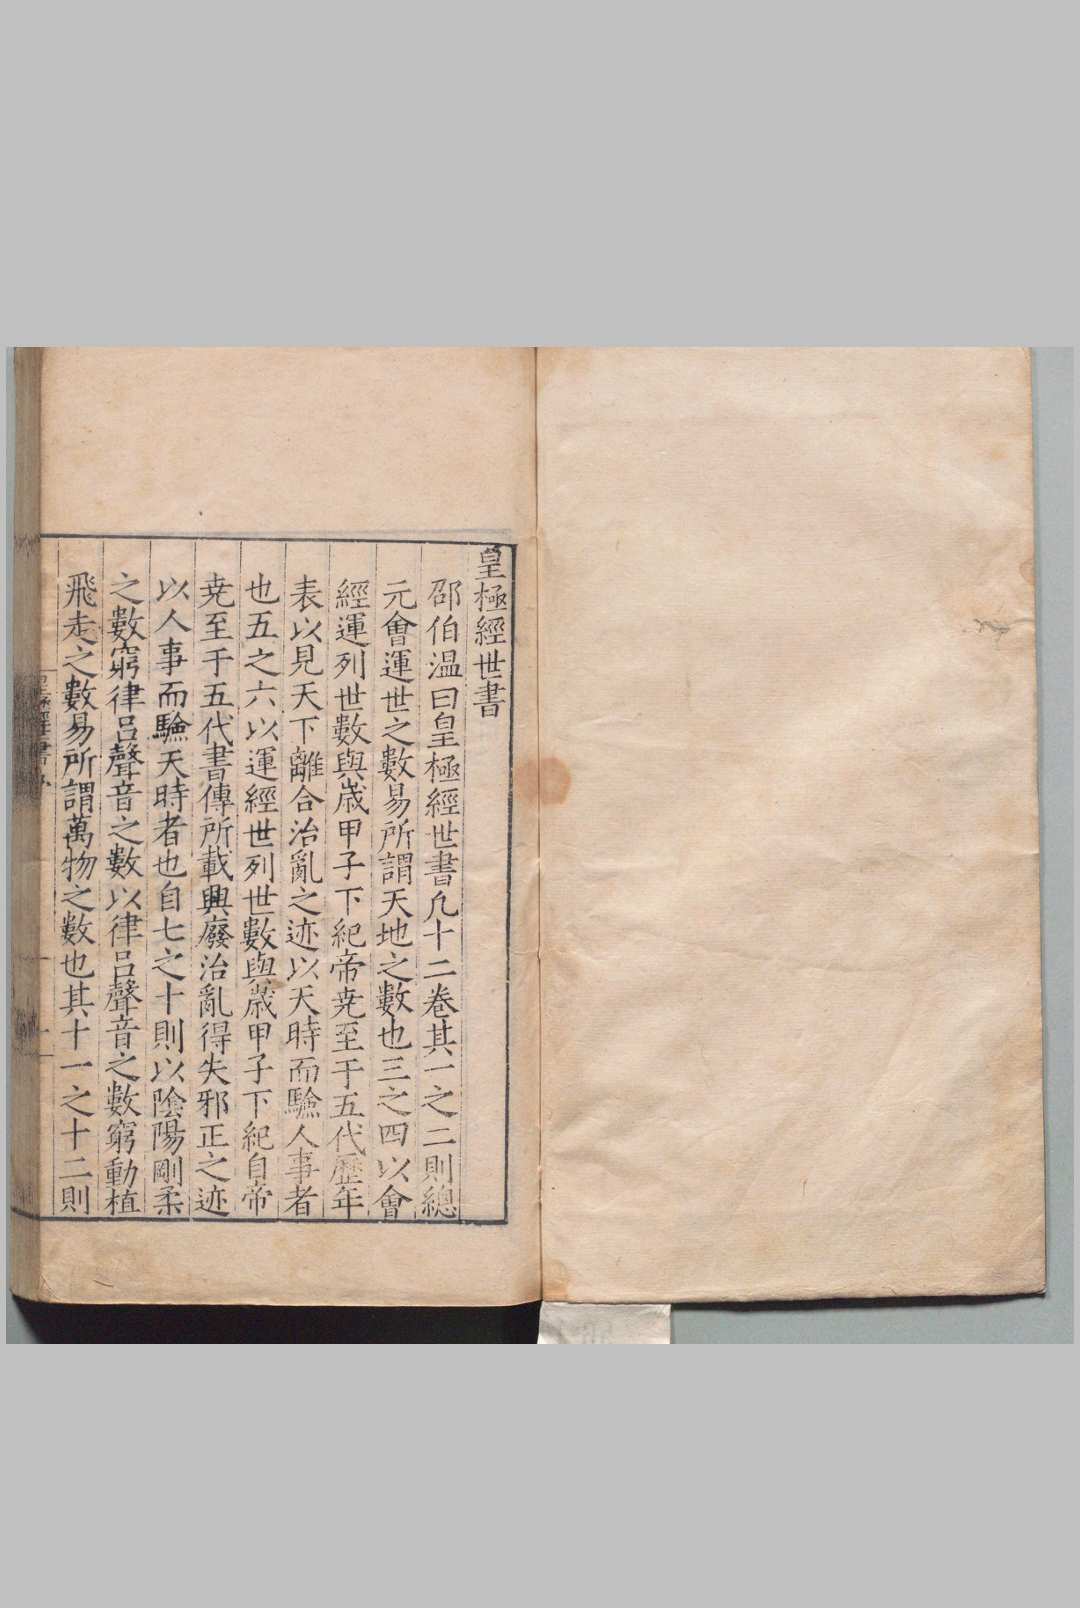 皇極經世書
邵伯温曰皇極經世書凡十二卷其一之二則總
元會運世之數易所謂天地之數也三之四以會
經運列世數與歳甲子下紀帝尭至于五代歷年
表以見天下離合治亂之迹以天時而驗人事者
也五之六以運經世列世數與歳甲子下紀自帝
尭至于五代書傳所載興廢治亂得失邪正之迹
以人事而驗天時者也自七之十則以陰陽剛柔
之數窮律呂聲音之數以律呂聲音之數窮動植
飛走之數易所謂萬物之數也其十一之十二則